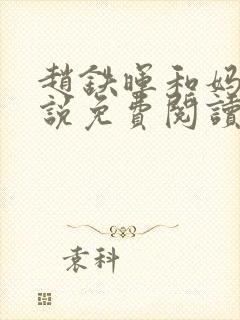 趙鉄暉和妈
說免費閱讀
袁科